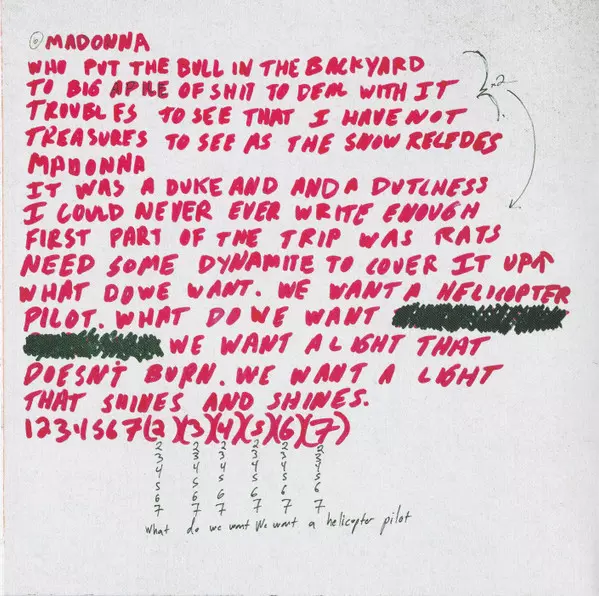 MADONNA
WHO PUT THE BULL IN THE BACKYARD
TO BIG APILE OF SHIT TO DEAL WITH IT
x2
TROUBLES TO SEE THAT I HAVE NOT
TREASURES TO SEE AS THE SNOW RECEDES
MADONNA
IT WAS A DUKE AND AND A DUTCHESS
I COULD NEVER EVER WRITE ENOUGH
FIRST PART OF THE TRIP WAS RATS
NEED SOME DYNAMITE TO COVER IT UP
WHAT DO WE WANT. WE WANT A HELICOPTER
PILOT. WHAT DO WE WANT
WE WANT A LIGHT THAT
DOESN'T BURN. WE WANT A LIGHT
THAT SHINES AND SHINES.
1234567(2)(3)(4)(5)(6)(7)
2 2 2 2 2 2
3 3 3 3 3 3
4 4 4 4 4 4
5 5 5 5 5 5
6 6 6 6 6 6
7 7 7 7 7 7
What do we want We want a helicopter pilot